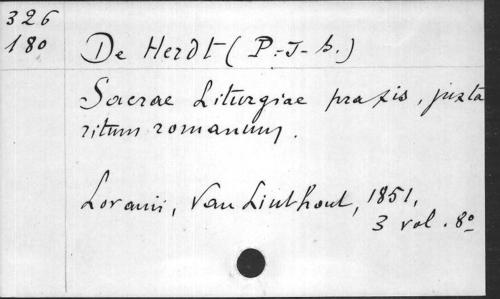 326
180
De Herdt (P.-J-b.)
Sacrae Liturgiae praxis, juxta
ritum romanum.
Lovanii, Van Linthout, 1851,
3 vol. 8º